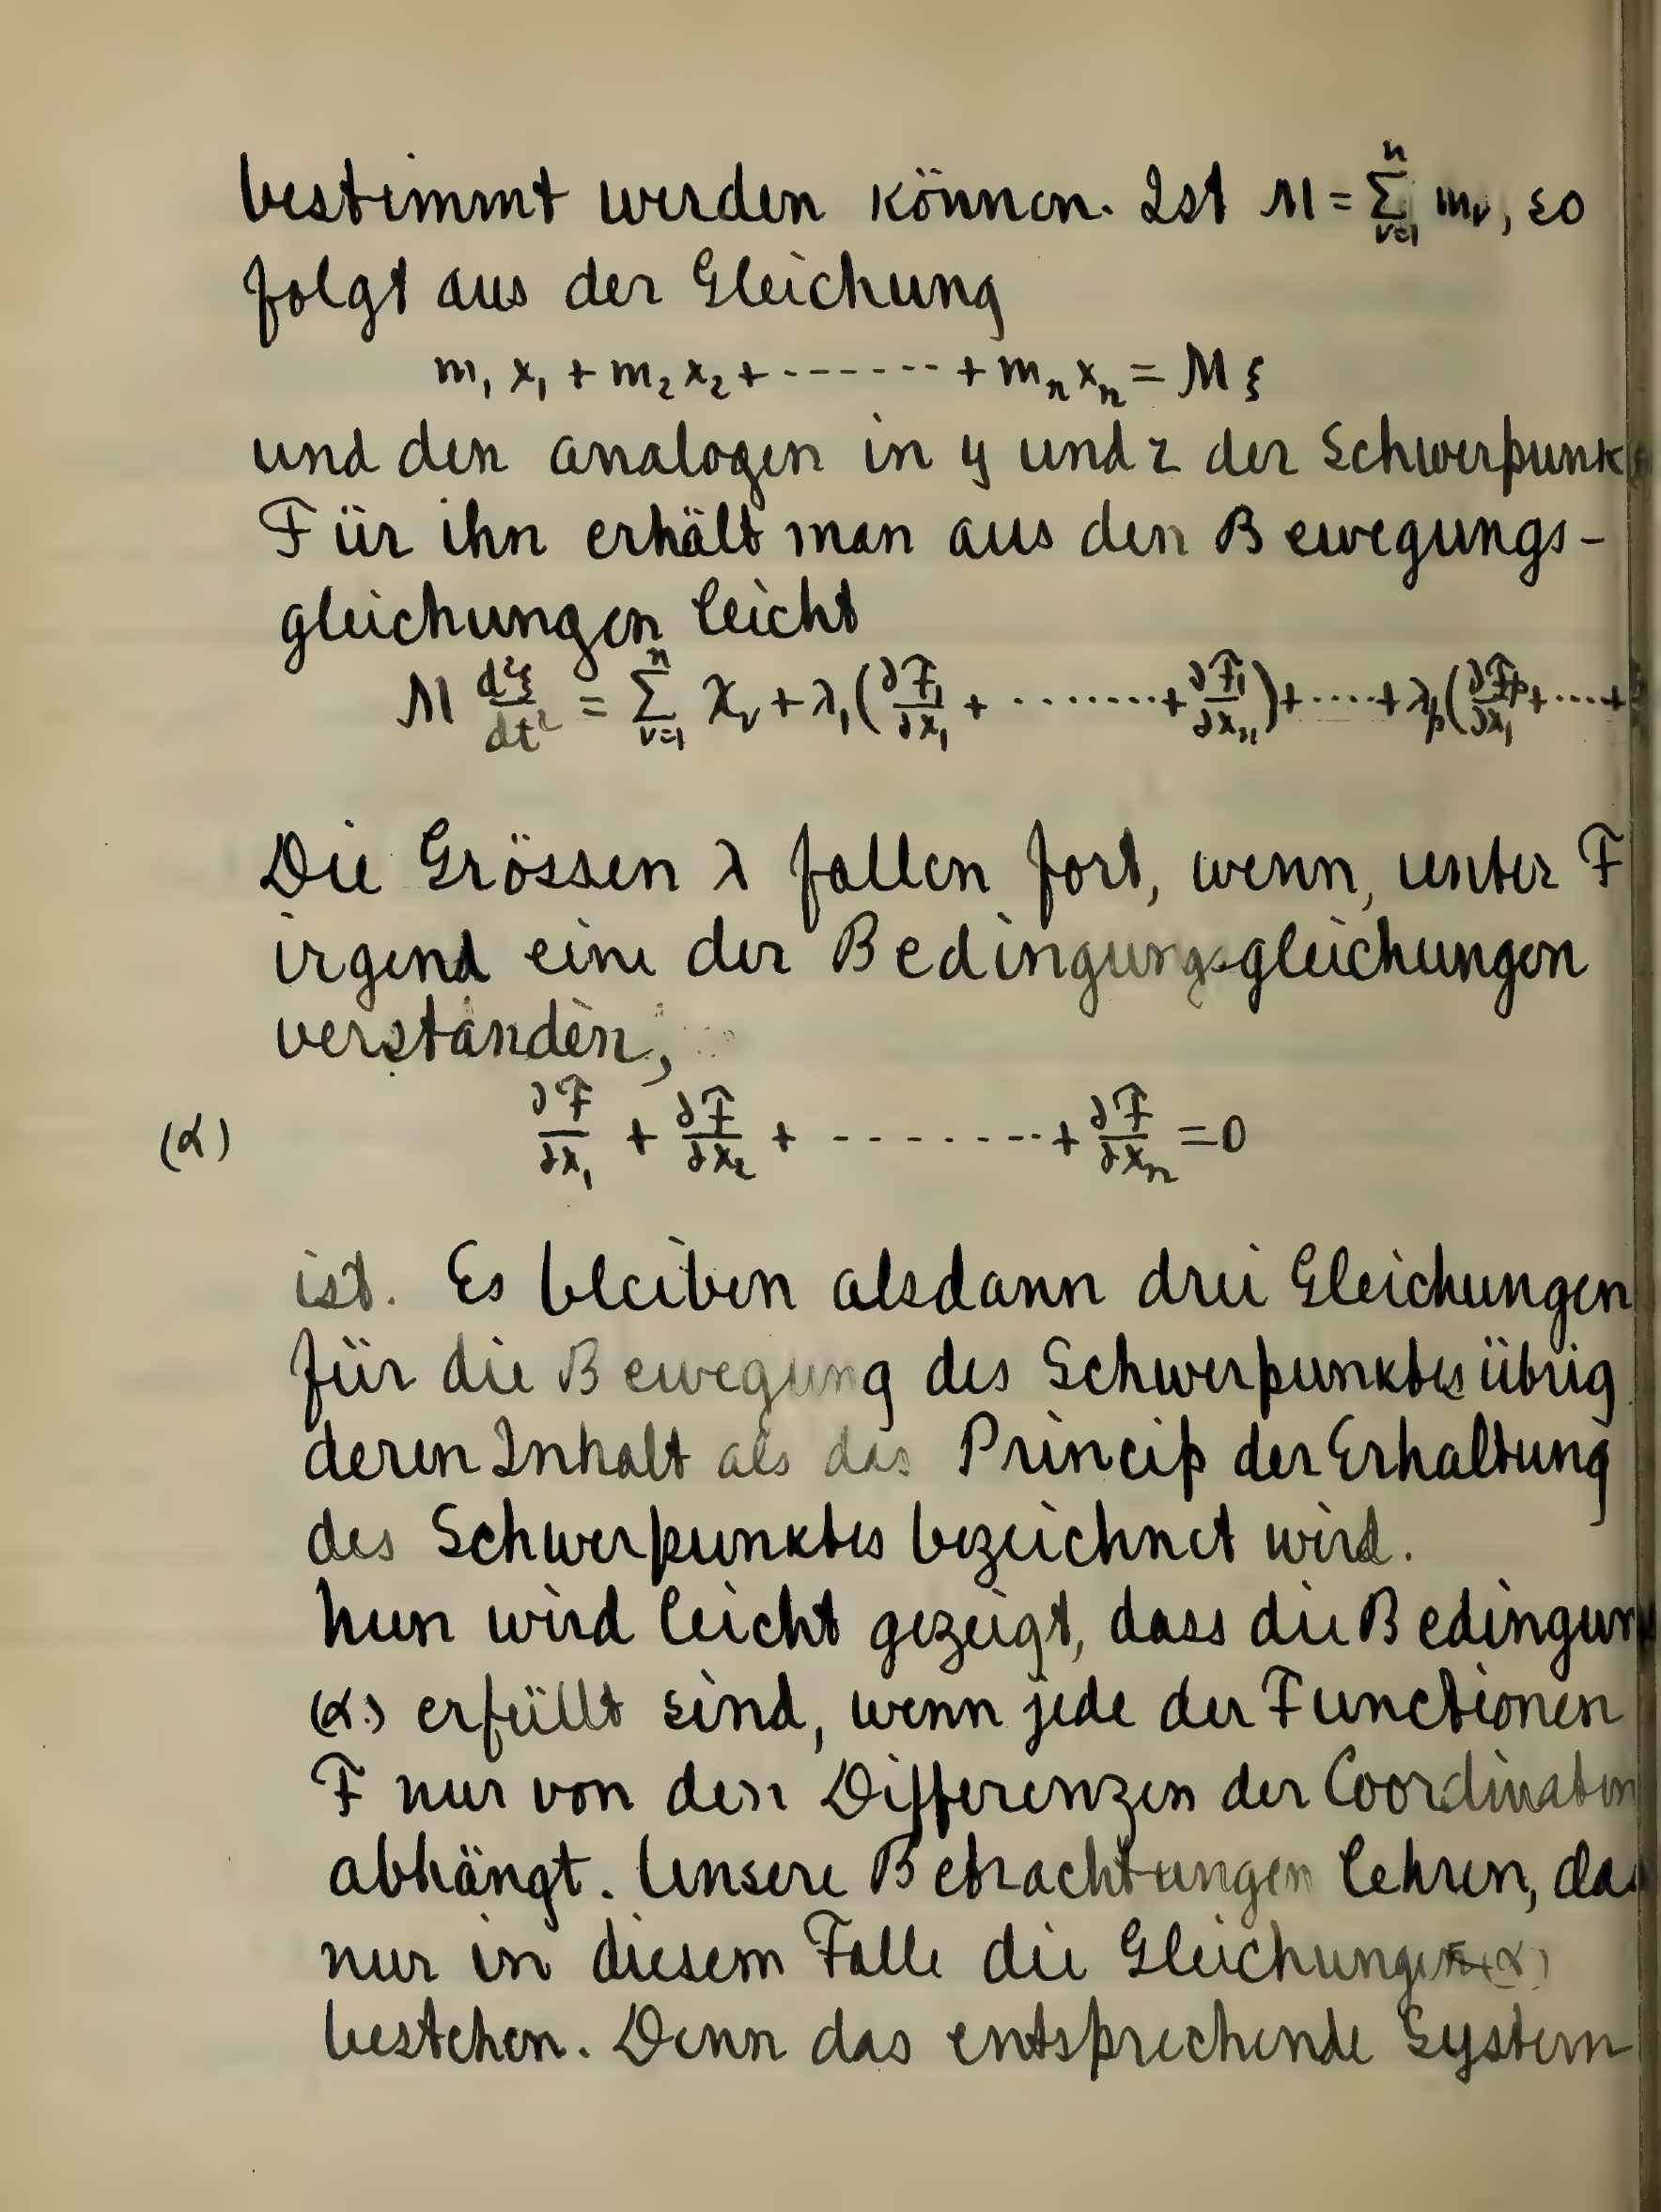 bestimmt werden können. Ist M = \sum_{ν=1}^{n} m_ν, so
folgt aus der Gleichung
m_1 x_1 + m_2 x_2 + ------- + m_n x_n = M ξ
und den analogen in y und z der Schwerpunk
Für ihn erhält man aus den Bewegungs-
gleichungen leicht
M \frac{d^2ξ}{dt^2} = \sum_{ν=1}^{n} X_ν + λ_1 (\frac{∂F_1}{∂x_1} + ........ + \frac{∂F_1}{∂x_n}) + ..... + λ_p (\frac{∂F_p}{∂x_1} + ..... +
Die Grössen λ fallen fort, wenn, unter F
irgend eine der Bedingungsgleichungen
verstanden,
(α) \frac{∂F}{∂x_1} + \frac{∂F}{∂x_2} + --------- + \frac{∂F}{∂x_n} = 0
ist. Es bleiben alsdann drei Gleichungen
für die Bewegung des Schwerpunktes übrig
deren Inhalt als das Princip der Erhaltung
des Schwerpunktes bezeichnet wird.
Nun wird leicht gezeigt, dass die Bedingun
(α.) erfüllt sind, wenn jede der Functionen
F nur von den Differenzen der Coordinaten
abhängt. Unsere Betrachtungen lehren, das
nur in diesem Falle die Gleichungen (α)
bestehen. Denn das entsprechende System